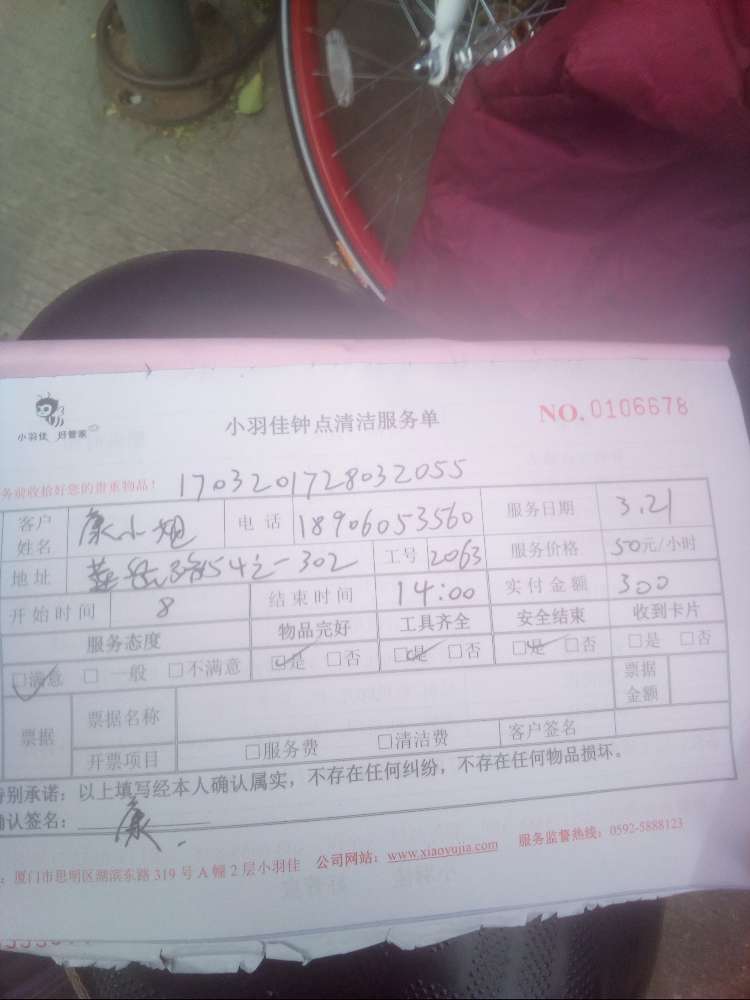 小羽佳 好管家
小羽佳钟点清洁服务单
NO. 0106678
务前收拾好您的贵重物品！ 1703201728032055
客户姓名 康小姐 电话 18906053560 服务日期 3.21
地址 54之一302 工号 2063 服务价格 50元/小时
开始时间 8 结束时间 14:00 实付金额 300
服务态度 物品完好 工具齐全 安全结束 收到卡片
☑满意 □一般 □不满意 ☑是 □否 ☑是 □否 ☑是 □否 □是 □否
票据 票据名称 票据金额
开票项目 □服务费 □清洁费 客户签名
特别承诺：以上填写经本人确认属实，不存在任何纠纷，不存在任何物品损坏。
确认签名： 康
：厦门市思明区湖滨东路 319 号 A 幢 2 层小羽佳 公司网站：www.xiaoyujia.com 服务监督热线：0592-5888123